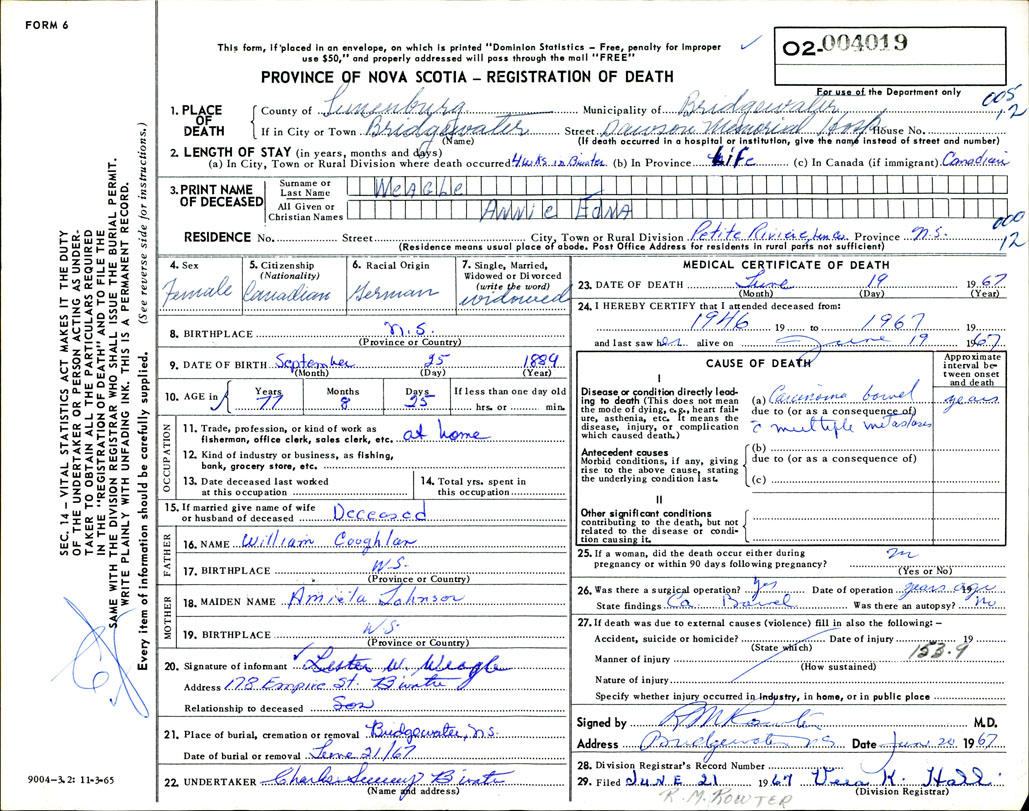 FORM 6
This form, if placed in an envelope, on which is printed "Dominion Statistics – Free, penalty for improper
use $50," and properly addressed will pass through the mail "FREE"
PROVINCE OF NOVA SCOTIA – REGISTRATION OF DEATH
02-004019
For use of the Department only
005
12
1. PLACE OF DEATH
County of Lunenburg Municipality of Bridgewater
If in City or Town Bridgewater Street Dawson Memorial Hosp House No.
(Name) (If death occurred in a hospital or institution, give the name instead of street and number)
2. LENGTH OF STAY (in years, months and days)
(a) In City, Town or Rural Division where death occurred 4 wks in B'water (b) In Province Life (c) In Canada (if immigrant) Canadian
3. PRINT NAME OF DECEASED
Surname or Last Name WEAGLE
All Given or Christian Names ANNIE EDNA
000
12
RESIDENCE No. Street City, Town or Rural Division Petite Riviere, Province N.S.
(Residence means usual place of abode. Post Office Address for residents in rural parts not sufficient)
4. Sex Female
5. Citizenship (Nationality) Canadian
6. Racial Origin German
7. Single, Married, Widowed or Divorced (write the word) widowed
8. BIRTHPLACE N.S.
(Province or Country)
9. DATE OF BIRTH September 25 1889
(Month) (Day) (Year)
10. AGE in Years 77 Months 8 Days 25 If less than one day old
hrs. or min.
OCCUPATION
11. Trade, profession, or kind of work as
fisherman, office clerk, sales clerk, etc. at home
12. Kind of industry or business, as fishing,
bank, grocery store, etc.
13. Date deceased last worked
at this occupation
14. Total yrs. spent in
this occupation
15. If married give name of wife
or husband of deceased Deceased
FATHER
16. NAME William Coughlan
17. BIRTHPLACE N.S.
(Province or Country)
MOTHER
18. MAIDEN NAME Johnson
19. BIRTHPLACE N.S.
(Province or Country)
20. Signature of informant Lester W. Weagle
Address 178 Empire St. B'water
Relationship to deceased Son
21. Place of burial, cremation or removal Bridgewater, N.S.
Date of burial or removal June 21/67
22. UNDERTAKER Charles B'water
(Name and address)
MEDICAL CERTIFICATE OF DEATH
23. DATE OF DEATH June 19 1967
(Month) (Day) (Year)
24. I HEREBY CERTIFY that I attended deceased from:
1946 19 to 1967 19
and last saw her alive on June 19 1967
CAUSE OF DEATH
Approximate interval between onset and death
I
Disease or condition directly leading to death (This does not mean
the mode of dying, e.g., heart failure, asthenia, etc. It means the
disease, injury, or complication
which caused death.)
(a) Carcinoma bowel years
due to (or as a consequence of)
c̄ multiple metastases
Antecedent causes
Morbid conditions, if any, giving
rise to the above cause, stating
the underlying condition last.
(b)
due to (or as a consequence of)
(c)
II
Other significant conditions
contributing to the death, but not
related to the disease or condition causing it.
25. If a woman, did the death occur either during
pregnancy or within 90 days following pregnancy?
(Yes or No)
26. Was there a surgical operation? yes Date of operation years ago 19
State findings Ca Bowel Was there an autopsy? No
27. If death was due to external causes (violence) fill in also the following: –
Accident, suicide or homicide? Date of injury 19
(State which)
153.9
Manner of injury
(How sustained)
Nature of injury
Specify whether injury occurred in industry, in home, or in public place
Signed by R M Kowter M.D.
Address Bridgewater NS Date June 20 1967
28. Division Registrar's Record Number
29. Filed JUNE 21 1967 Vera K. Hall
(Division Registrar)
R. M. KOWTER
SEC. 14 – VITAL STATISTICS ACT MAKES IT THE DUTY
OF THE UNDERTAKER OR PERSON ACTING AS UNDER-
TAKER TO OBTAIN ALL THE PARTICULARS REQUIRED
IN THE "REGISTRATION OF DEATH" AND TO FILE THE
SAME WITH THE DIVISION REGISTRAR WHO SHALL ISSUE THE BURIAL PERMIT.
WRITE PLAINLY WITH UNFADING INK. THIS IS A PERMANENT RECORD.
Every item of information should be carefully supplied. (See reverse side for instructions.)
9004-3.2: 11-3-65